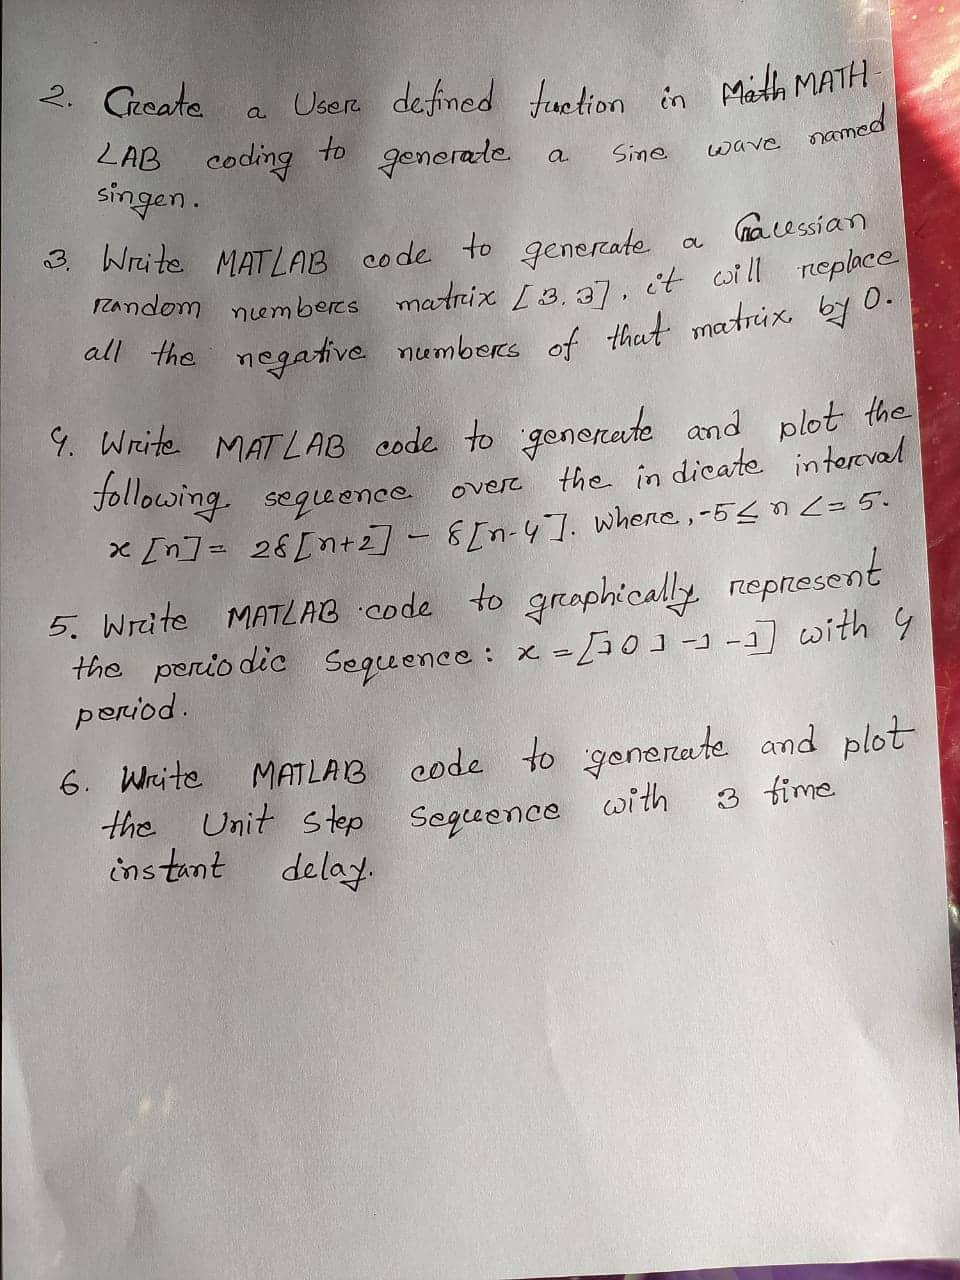 2. Create a User defined fuction in Math MATH-
LAB coding to generate a sine wave named
singen.
3. Write MATLAB code to generate a Gaussian
random numbers matrix [3.3], it will replace
all the negative numbers of that matrix by 0.
4. Write MATLAB code to generate and plot the
following sequence over the indicate interval
x[n] = 2δ[n+2] - δ[n-4]. Where, -5≤ n <= 5.
5. Write MATLAB code to graphically represent
the periodic Sequence: x = [1 0 1 -1 -1] with 4
period.
6. Write MATLAB code to generate and plot
the Unit step Sequence with 3 time
instant delay.